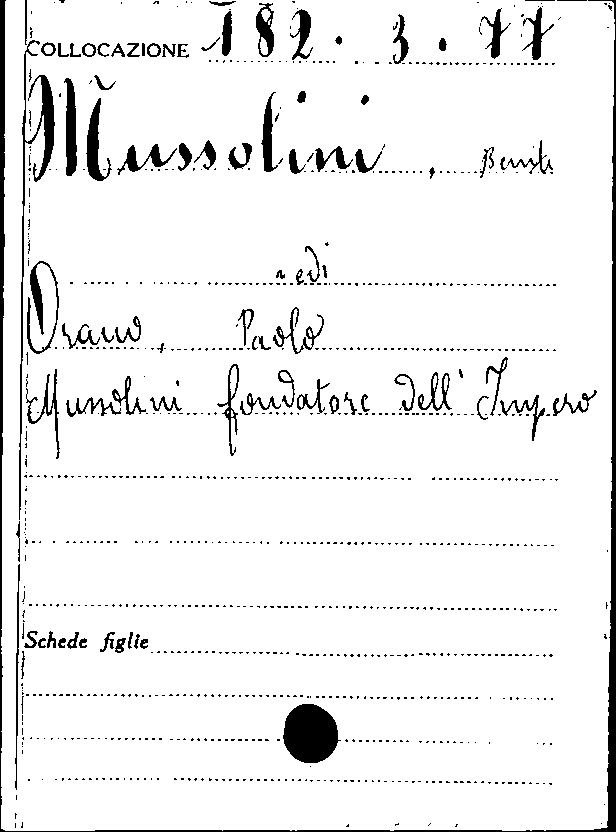 COLLOCAZIONE 182.3.77
Mussolini, Benito
vedi
Orano, Paolo
Mussolini fondatore dell'Impero
Schede figlie